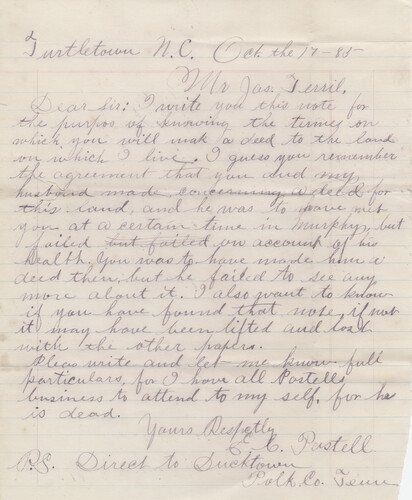 Turtletown N.C. Oct. the 17-85
Mr Jas. Terril,
Dear sir: I write you this note for
the purpos of knowing the termes on
which you will mak a deed to the land
on which I live. I guess you remember
the agreement that you and my
husband made concerning a deed for
this land, and he was to have met
you at a certain time in Murphy, but
failed but failed on account of his
health. You was to have made him a
deed then, but he failed to see any
more about it. I also want to know
if you have found that note, if not
it may have been lifted and lost
with the other papers.
Pleas write and let me know full
particulars, for I have all Postells
business to attend to my self, for he
is dead.
Yours Respctly
E. C. Postell
P.S. Direct to Ducktown
Polk Co. Tenn